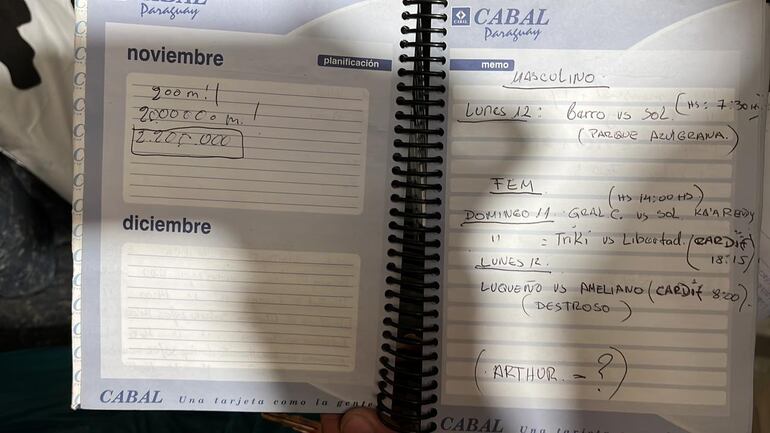 Paraguay
noviembre
planificación
200 m.!
2000000 m. !
2.200.000
diciembre
CABAL Una tarjeta como la gente
CABAL
CABAL
Paraguay
memo
MASCULINO.
LUNES 12: Barro vs SOL. (HS: 7:30 M.
(PARQUE AZUGRANA.)
FEM
(HS 14:00 HS)
DOMINGO 11. GRAL C. vs SOL KA'AREDY
" = Triki vs Libertad. (CARDIF
18:15)
LUNES 12.
LUQUEÑO VS AMELIANO (CARDIF 8:00).
(DESTROSO)
(. ARTHUR. = ?)
CABAL Una tarjeta como